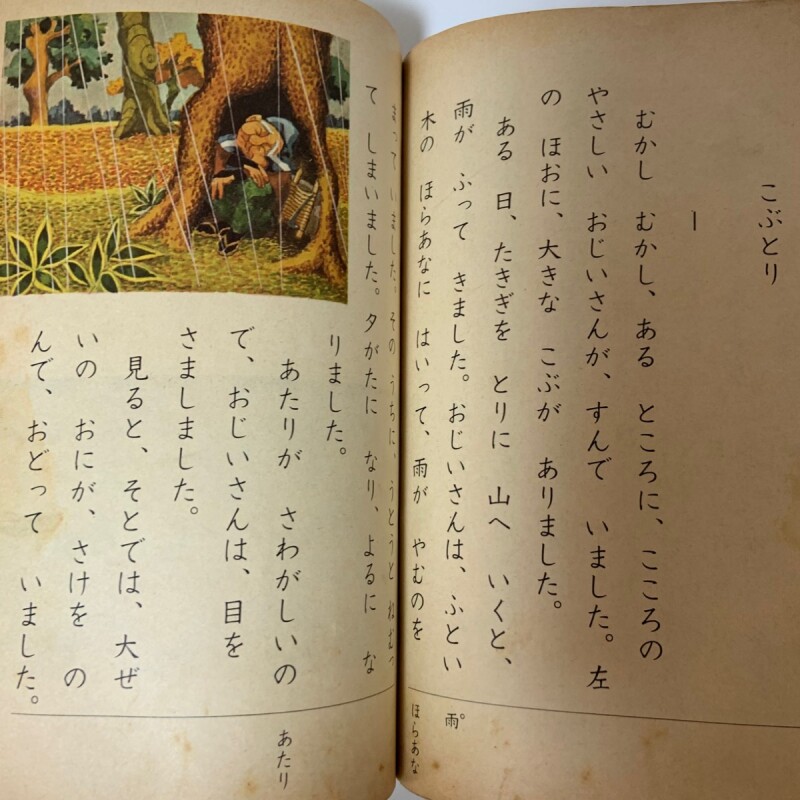 こぶとり
一
むかし むかし、ある ところに、こころの
やさしい おじいさんが、すんで いました。左
の ほおに、大きな こぶが ありました。
ある 日、たきぎを とりに 山へ いくと、
雨が ふって きました。おじいさんは、ふとい
木の ほらあなに はいって、雨が やむのを
まって いました。その うちに、うとうと ねむっ
て しまいました。夕がたに なり、よるに な
りました。
あたりが さわがしいの
で、おじいさんは、目を
さましました。
見ると、そとでは、大ぜ
いの おにが、さけを の
んで、おどって いました。
雨。
ほらあな
あたり